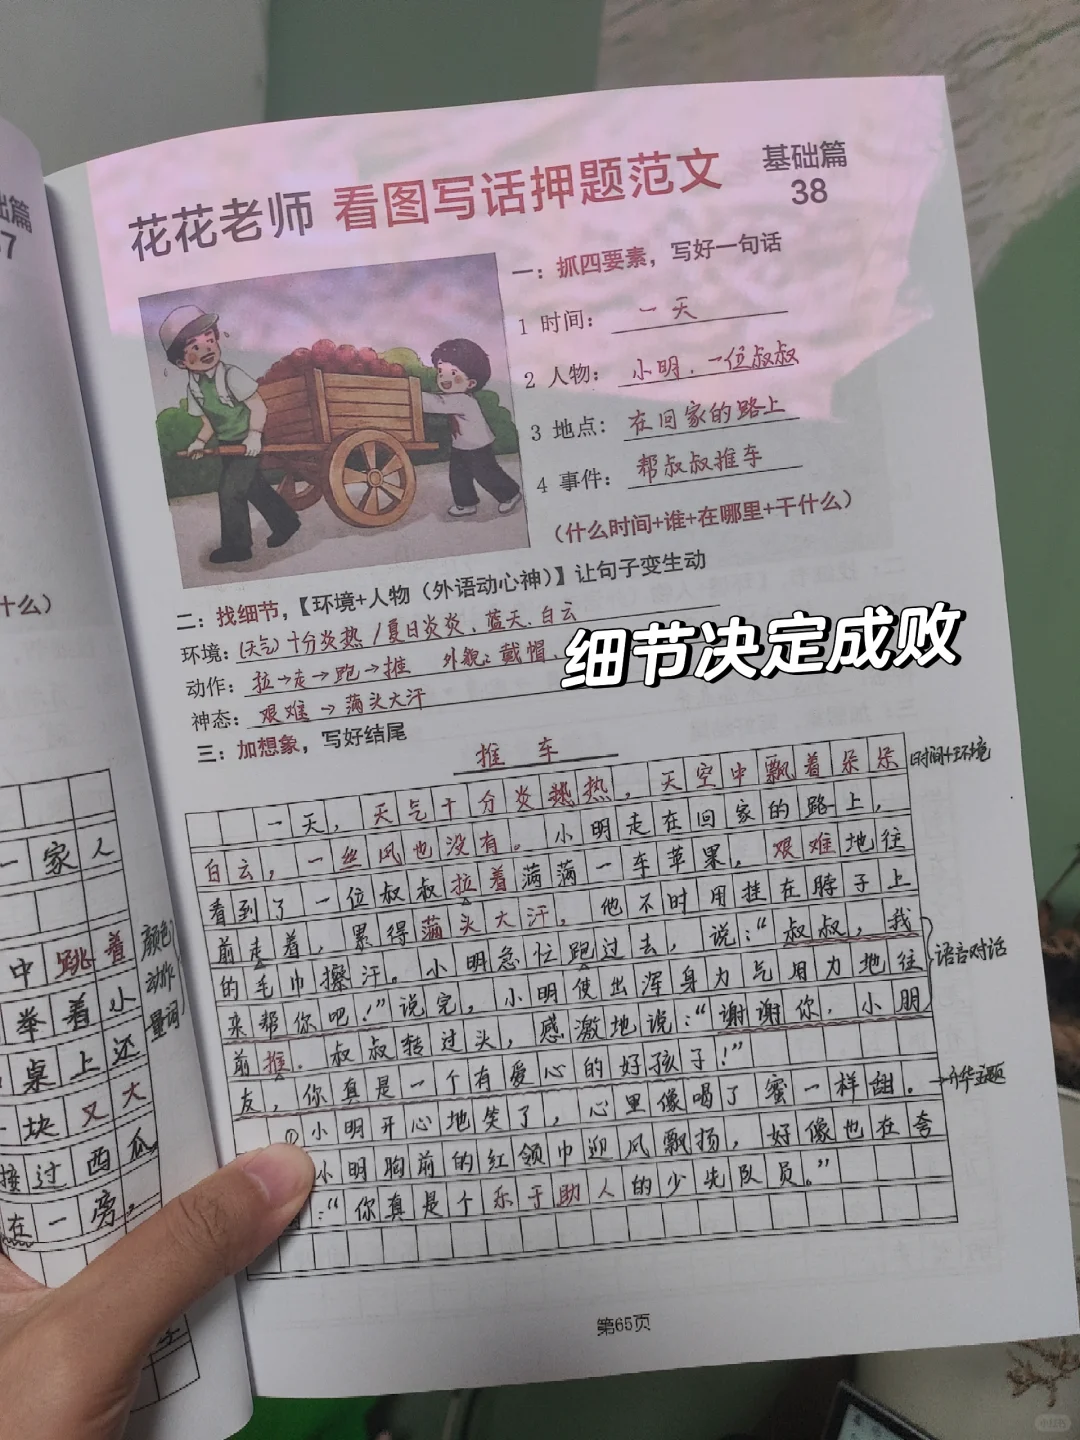 花花老师 看图写话押题范文 基础篇 38
一：抓四要素，写好一句话
1 时间： 一天
2 人物： 小明、一位叔叔
3 地点： 在回家的路上
4 事件： 帮叔叔推车
（什么时间+谁+在哪里+干什么）
二：找细节，【环境+人物（外语动心神）】让句子变生动
环境：(天气)十分炎热/夏日炎炎、蓝天、白云
动作：拉→走→跑→推 外貌：戴帽、
神态：艰难→满头大汗
细节决定成败
三：加想象，写好结尾
推车
一天，天气十分炎热热，天空中飘着朵朵
时间+环境
白云，一丝风也没有。小明走在回家的路上，
看到了一位叔叔拉着满满一车苹果，艰难地往
前走着，累得满头大汗，他不时用挂在脖子上
的毛巾擦汗。小明急忙跑过去，说：“叔叔，我
来帮你吧！”说完，小明使出浑身力气用力地往
语言对话
前推。叔叔转过头，感激地说：“谢谢你，小朋
友，你真是一个有爱心的好孩子！”
①小明开心地笑了，心里像喝了蜜一样甜。
→升华主题
小明胸前的红领巾迎风飘扬，好像也在夸
：“你真是个乐于助人的少先队员。”
第65页
础篇
37
什么）
一家人
中跳着
举着小
桌上还
块又大
接过西瓜
在一旁。
颜色
动作
量词
小红书